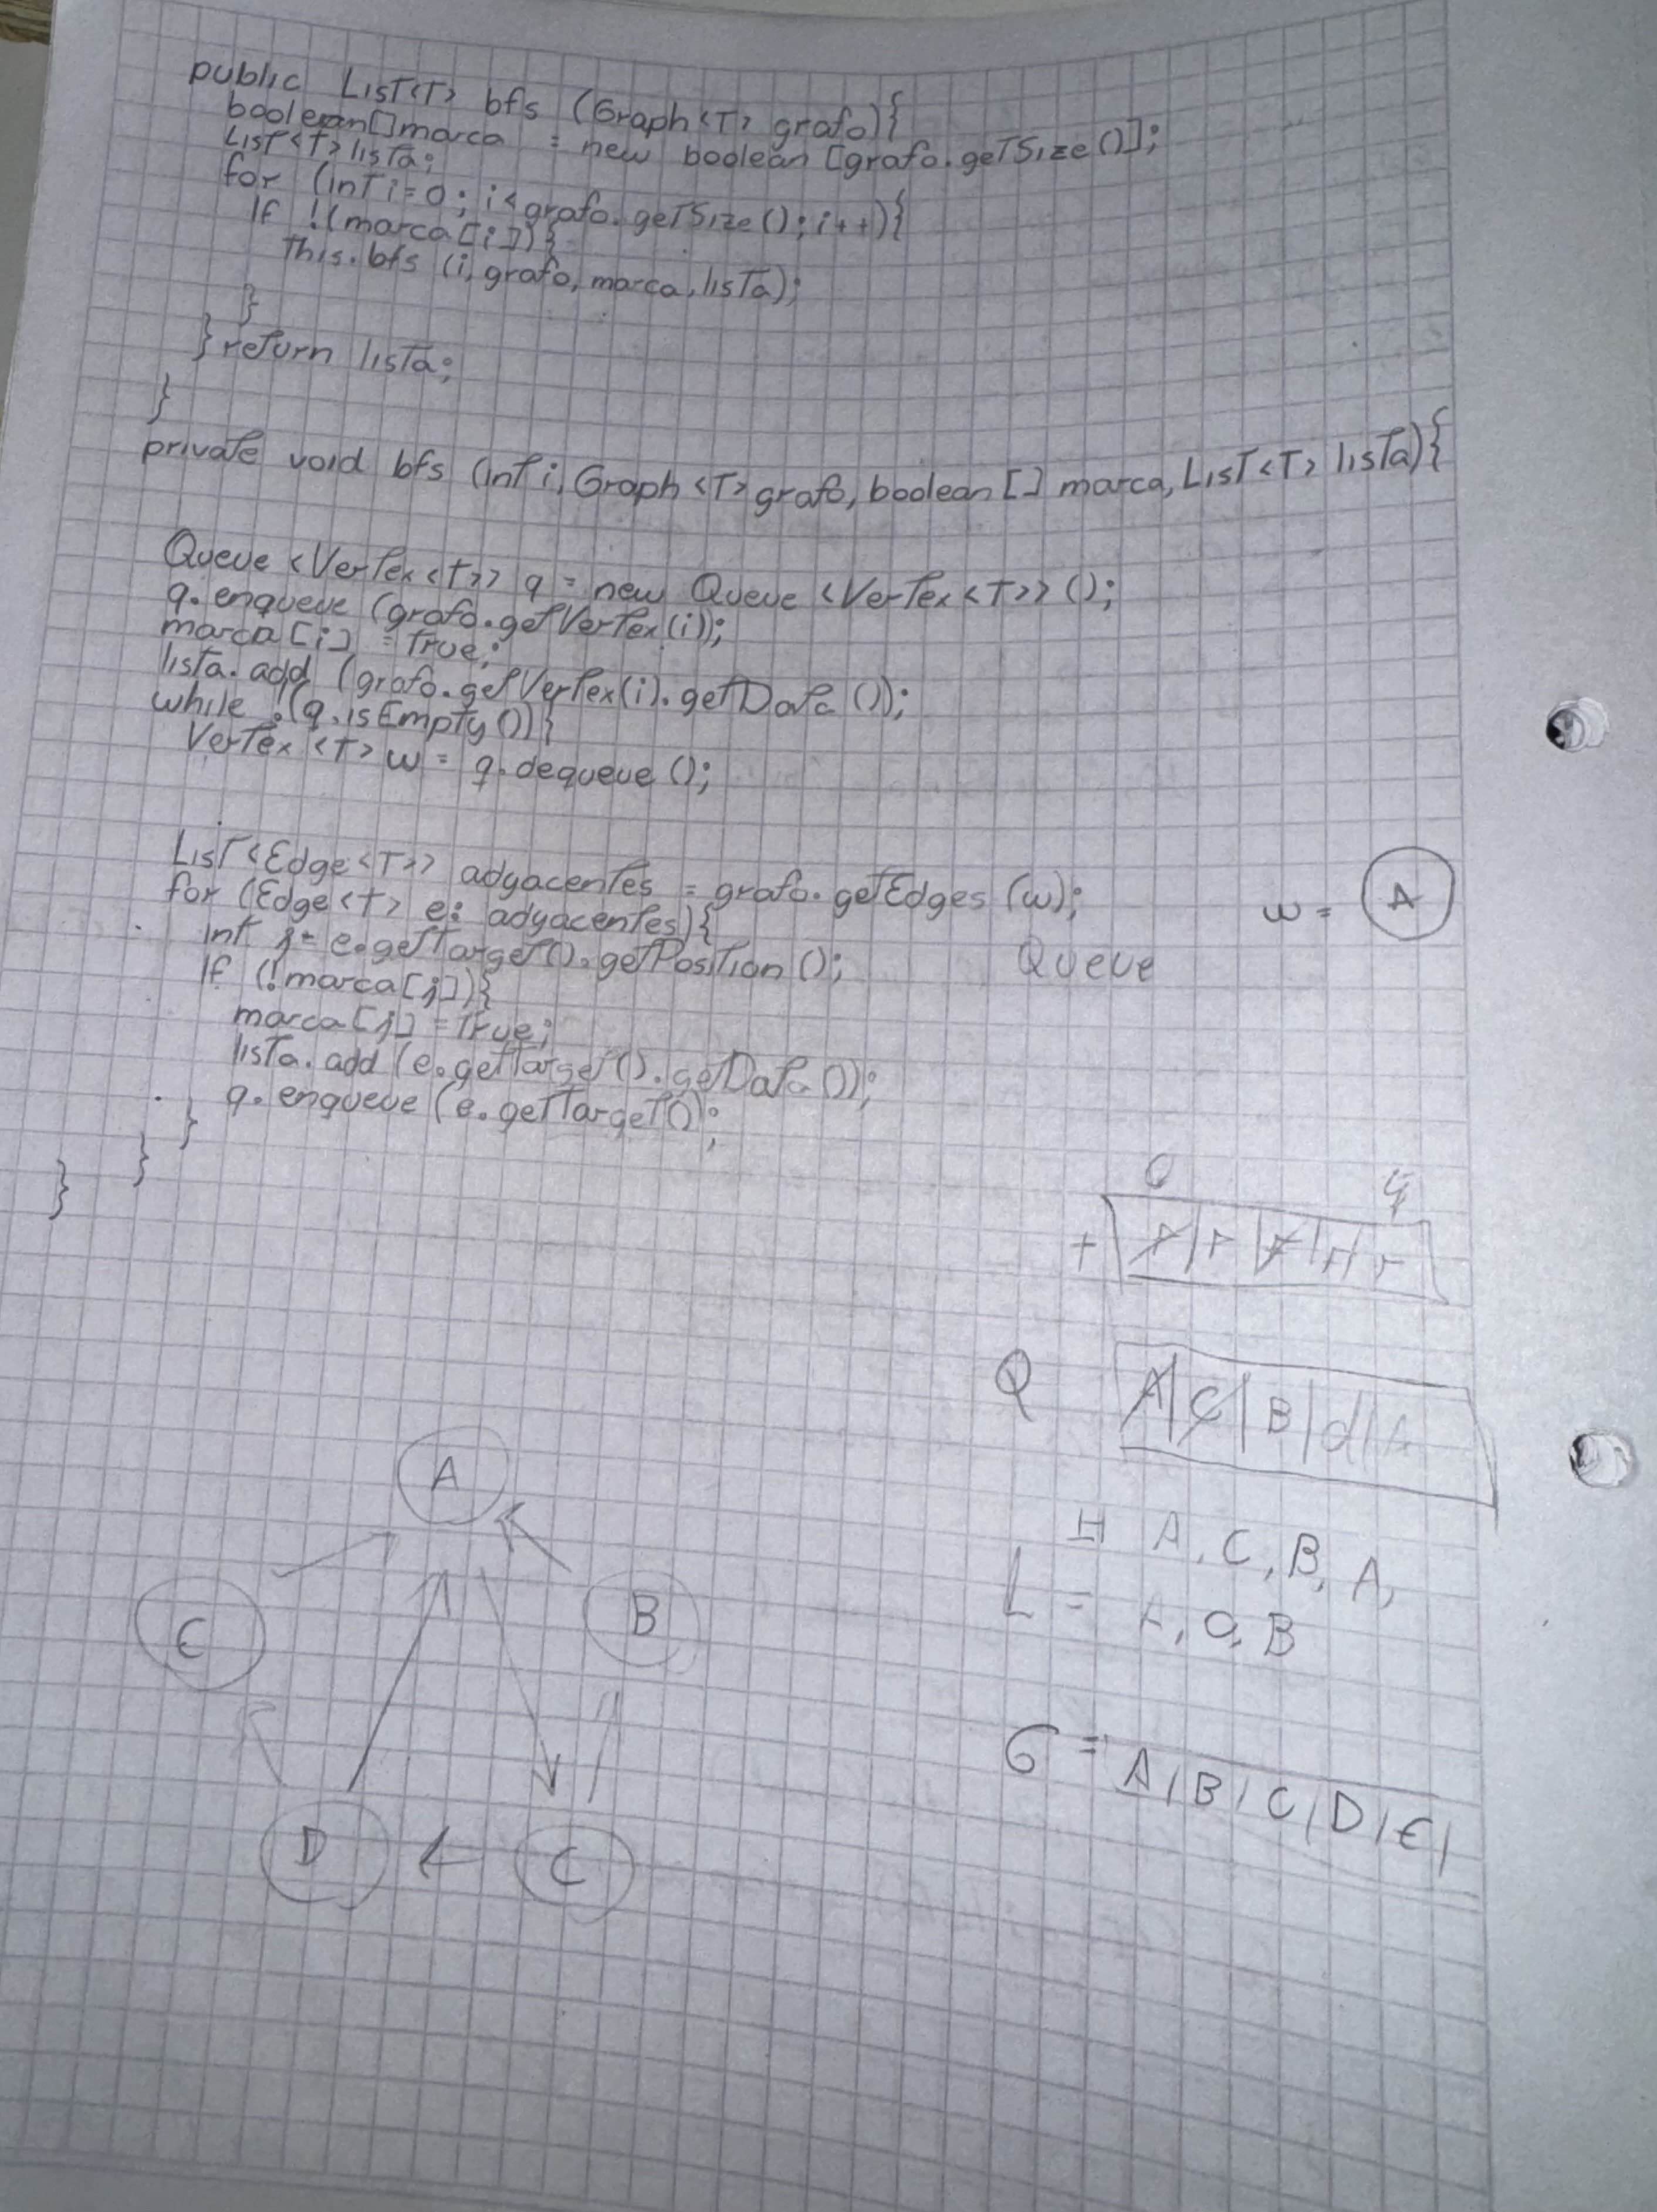 public List<T> bfs (Graph<T> grafo){
boolean[]marca = new boolean [grafo.getSize()];
List<T> lista;
for (int i=0; i<grafo.getSize(); i++){
If !(marca[i]){
this.bfs (i, grafo, marca, lista);
}
} return lista;
}
private void bfs (int i, Graph<T> grafo, boolean[] marca, List<T> lista){
Queue <Vertex<T>> q = new Queue <Vertex<T>> ();
q.enqueue (grafo.getVertex(i));
marca[i] = true;
lista.add (grafo.getVertex(i).getData());
while !(q.isEmpty()){
Vertex <T> w = q.dequeue ();
List<Edge<T>> adyacentes = grafo.getEdges (w);
for (Edge<T> e: adyacentes){
int j= e.getTarget().getPosition ();
If (!marca[j]){
marca[j] = true;
lista.add (e.getTarget().getData());
q.enqueue (e.getTarget();
}
}
}
w = A
Queue
0 4
Q A|C|B|d|
A, C, B, A,
L =
G = A|B|C|D|E|
A
E
B
D
C